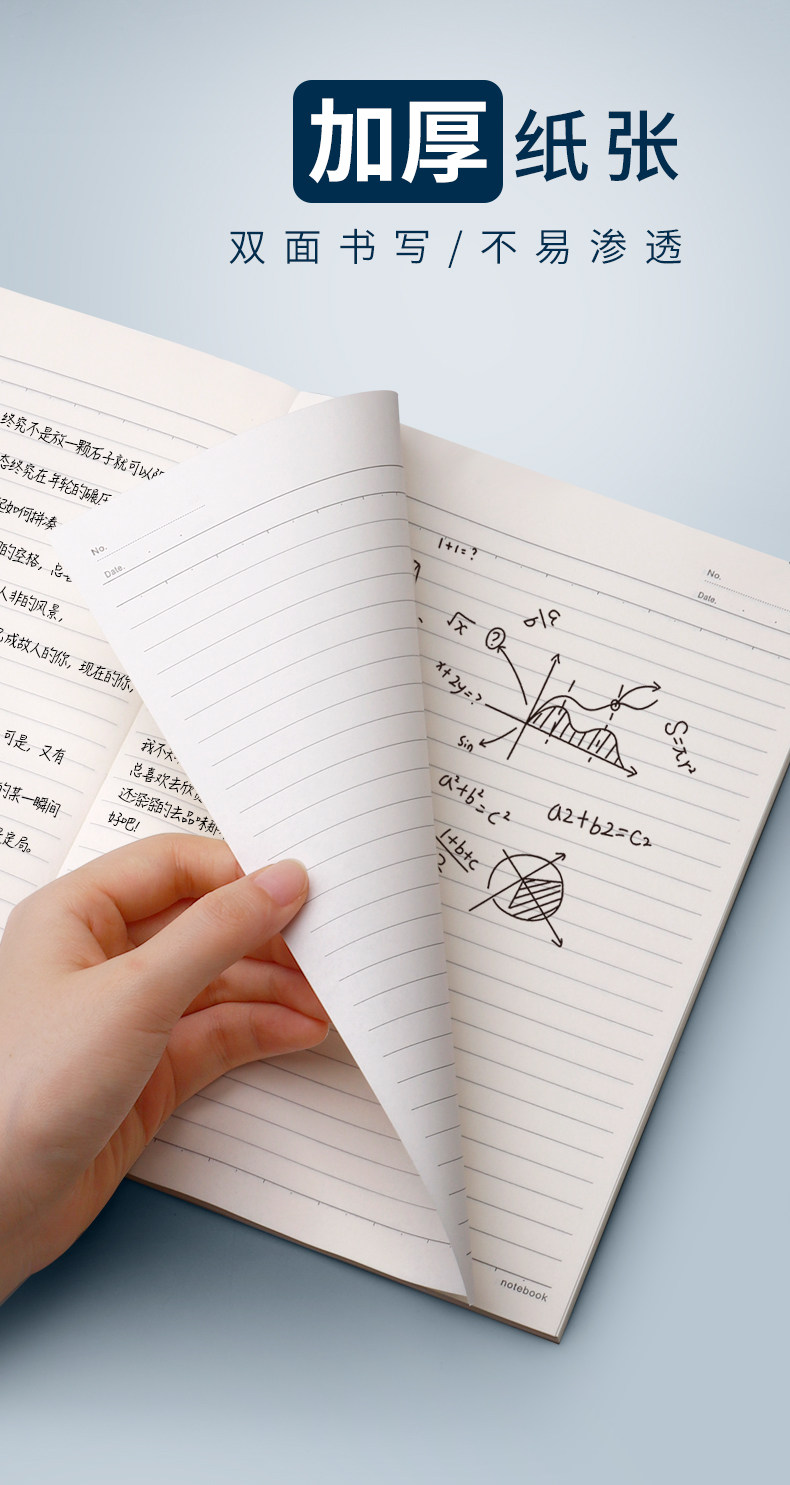 加厚纸张
双面书写/不易渗透
终究不是放一颗石子就可以
态终究在年轮的碾压
如何拼凑
的空格,总是
人非的风景,
成故人的你,现在的你,
可是,又有
的某一瞬间
定局。
我不
总喜欢去欣
还深深的去品味那
好吧!
No.
Date.
No.
Date.
1+1=?
√x
?
x+2y=?
sin
S=πr²
a²+b²=c²
a2+b2=c2
1+b+c
2
notebook